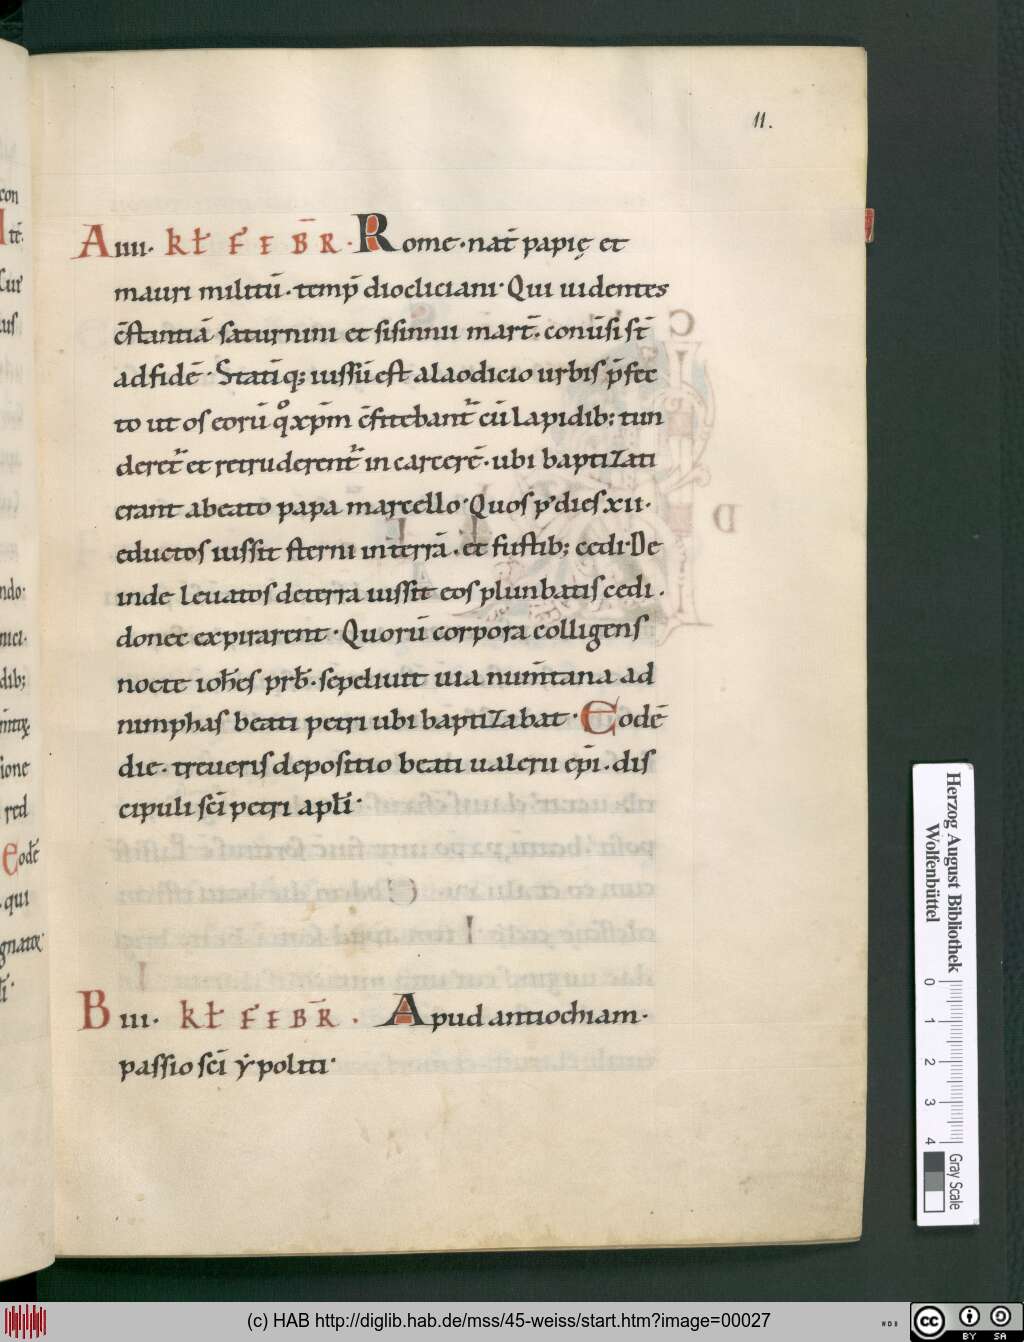 11.
A iiii. kł FEBR̄. Rome. nat̄ papię et
mauri militū. temp̄ diocliciani. Qui uidentes
c̄stantiā saturnini et sisinnii mart̄. conūsi st̄
ad fidē. Statīq; iussū est a laodicio urbis p̄fec
to ut os eorū qͦ xp̄m c̄fitebant᷑ cū lapidib; tun
deret᷑ et retruderent᷑ in carcerē. ubi baptizati
erant a beato papa marcello. Quos p᷒ dies xii.
eductos iussit sterni in terrā. et fustib; cedi. De
inde leuatos de terra iussit eos plunbatis cedi.
donec expirarent. Quorū corpora colligens
nocte ioh̄es prb̄. sepeliuit uia num̄tana ad
nimphas beati petri ubi baptizabat. Eodē
die. treueris depositio beati ualerii ep̄i. dis
cipuli sc̄i petri apłi.
B iii. kł FEBR̄. Apud antiochiam.
passio sc̄i ẏpoliti.
con
dib;
ione
red
Eodē
qui
Herzog August Bibliothek
Wolfenbüttel
0 1 2 3 4
Gray Scale
(c) HAB http://diglib.hab.de/mss/45-weiss/start.htm?image=00027
WDB
cc BY SA